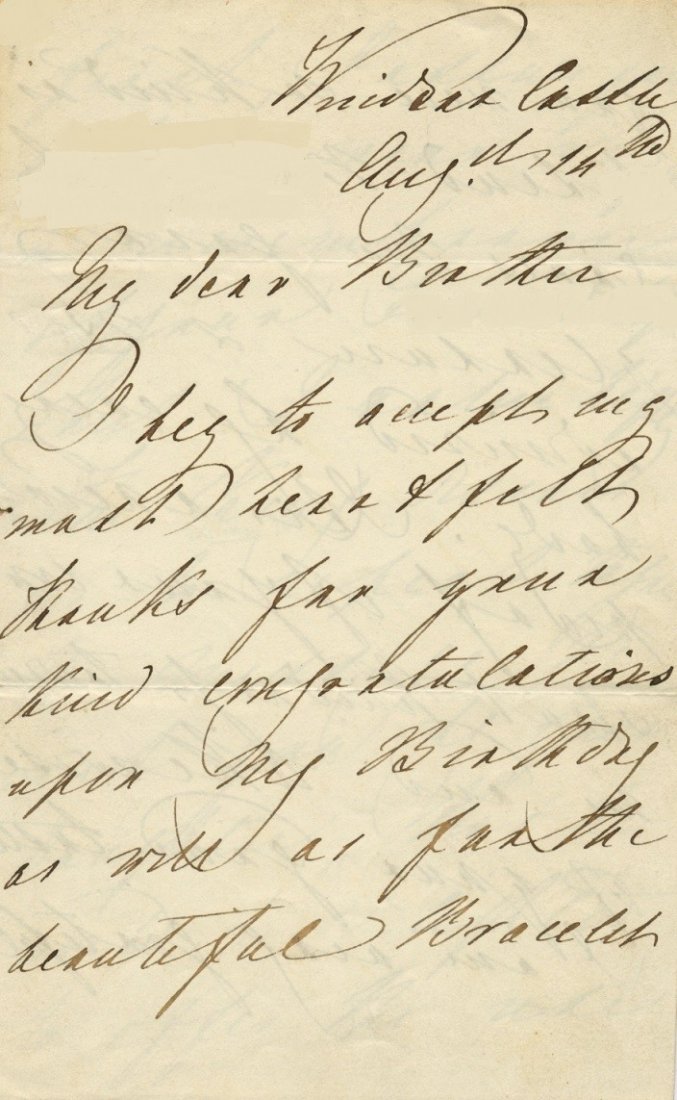 Windsor Castle
Aug.st 14th
My dear Brother
I beg to accept my
most heart felt
thanks for your
kind congratulations
upon my Birthday
as well as for the
beautiful Bracelet